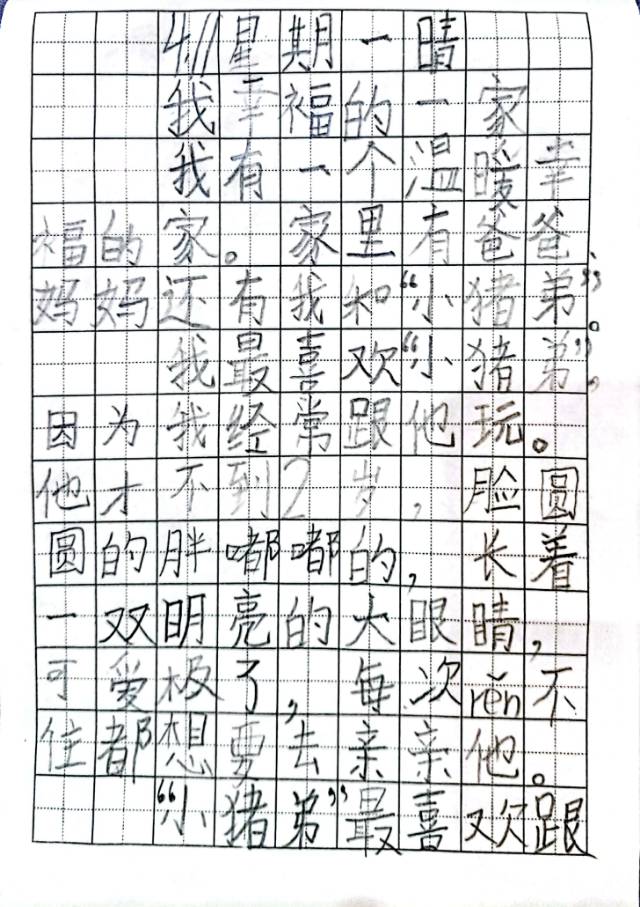 4.11星期一晴
我幸福的一家
我有一个温暖幸
福的家。家里有爸爸、
妈妈还有我和“小猪弟”。
我最喜欢“小猪弟”,
因为我经常跟他玩。
他才不到2岁,脸圆
圆的胖嘟嘟的,长着
一双明亮的大眼睛,
可爱极了,每次rěn不
住都想要去亲亲他。
“小猪弟”最喜欢跟